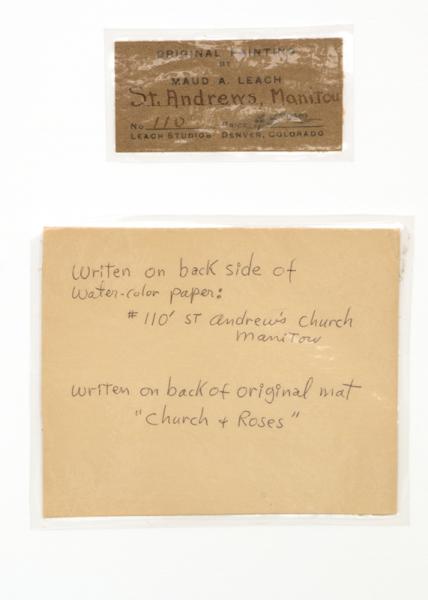 ORIGINAL PAINTING
BY
MAUD A. LEACH
St. Andrews, Manitou
No. 110 PRICE
LEACH STUDIOS DENVER, COLORADO
writen on back side of
water-color paper:
#110' ST andrew's church
manitow
written on back of original mat
"Church + Roses"